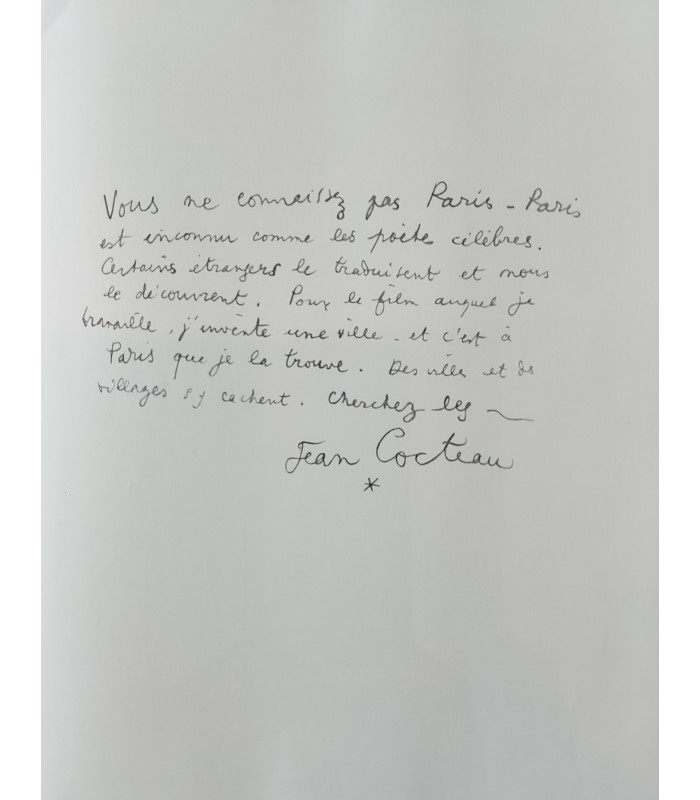 Vous ne connaissez pas Paris - Paris
est inconnu comme les poètes célèbres.
Certains étrangers le traduisent et nous
le découvrent. Pour le film auquel je
travaille, j'invente une ville - et c'est à
Paris que je la trouve. Des villes et des
villages s'y cachent. Cherchez les —
Jean Cocteau
*